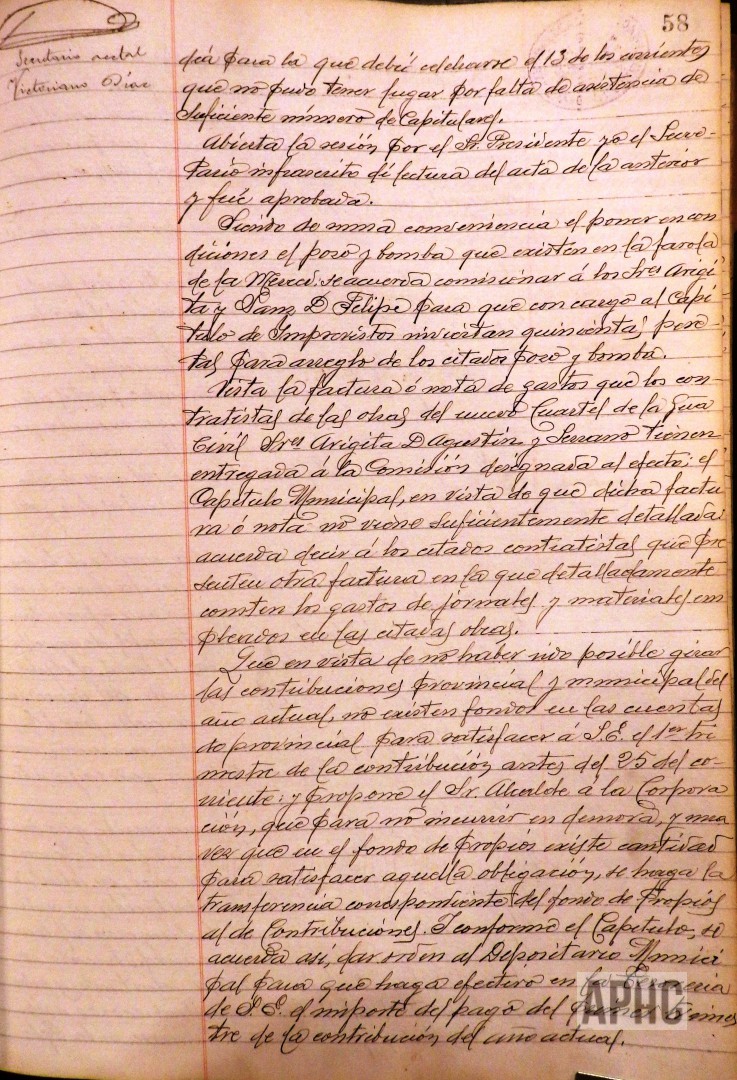 58
Secretario actal
Victoriano Díaz
día para la que debió celebrarse el 13 de los corrientes
que no pudo tener lugar por falta de asistencia de
suficiente número de Capitulares.
Abierta la sesión por el Sr. Presidente yo el Secre-
tario infrascrito dí lectura del acta de la anterior
y fué aprobada.
Siendo de suma conveniencia el poner en con-
diciones el pozo y bomba que existen en la farola
de la Merced se acuerda comisionar á los Sres Arigi-
ta y Sanz D Felipe para que con cargo al Capí-
tulo de Imprevistos inviertan quinientas pese-
tas para arreglo de los citados pozo y bomba.
Vista la factura ó nota de gastos que los con-
tratistas de las obras del nuevo Cuartel de la Gua
Civil Sres Arigita D Agustín y Serrano tienen
entregada á la Comisión designada al efecto; el
Capítulo Municipal, en vista de que dicha factu-
ra ó nota no viene suficientemente detallada
acuerda decir á los citados contratistas que pre
senten otra factura en la que detalladamente
consten los gastos de jornales y materiales em
pleados en las citadas obras.
Que en vista de no haber sido posible girar
las contribuciones provincial y municipal del
año actual, no existen fondos en las cuentas
de provincial para satisfacer á S.E. el 1er tri
mestre de la contribución antes del 25 del co-
rriente; y propone el Sr. Alcalde á la Corpora
ción, que para no incurrir en demora, y una
vez que en el fondo de propios existe cantidad
para satisfacer aquella obligación, se haga la
transferencia correspondiente del fondo de Propios
al de Contribuciones. I conforme el Capítulo, se
acuerda así, dar orden al Depositario Munici
pal para que haga efectivo en la
de S.E. el importe del pago del primer trimes
tre de la contribución del año actual.
APHC